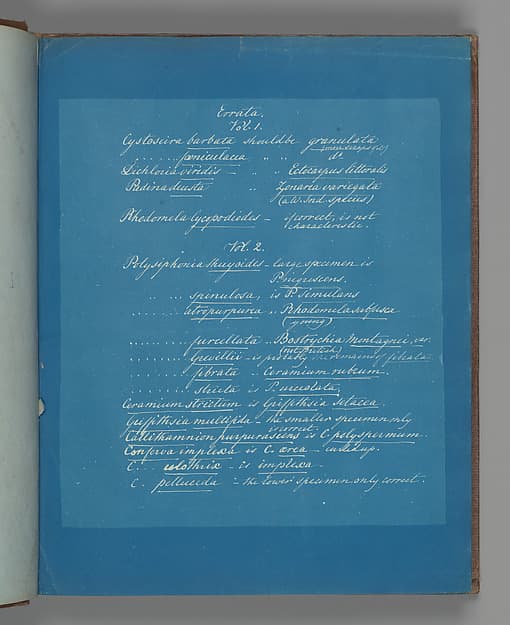 Errata.
Vol. 1.
Cystoseira barbata should be granulata
. . . . . . . pœniculacea " " d°
Dichloria viridis — " Ectocarpus littoralis
Padina deusta " Zonaria variegata
(a W. Ind. species)
Rhodomela lycopodioides — if correct, is not
characteristic.
Vol. 2.
Polysiphonia thuyoides — large specimen is
P. nigrescens.
" . . . spinulosa, is P. simulans
. . . . . . . atropurpurea " Rhodomela subfusca
(young)
. . . . . . . furcellata " Bostrychia Montagnei, var.
(not British)
. . . . . . . Grevillii — is probably remains of fibrata
. . . . . . . fibrata — Ceramium rubrum.
. . . . . . . stricta is P. urceolata,
Ceramium strictum is Griffithsia setacea.
Griffithsia multifida — the smaller specimen only
is correct.
Callithamnion purpurascens is C. polyspermum.
Conferva implexa is C. ærea — curled up.
C. colothrix — is implexa.
C. pellucida — the lower specimen only correct.